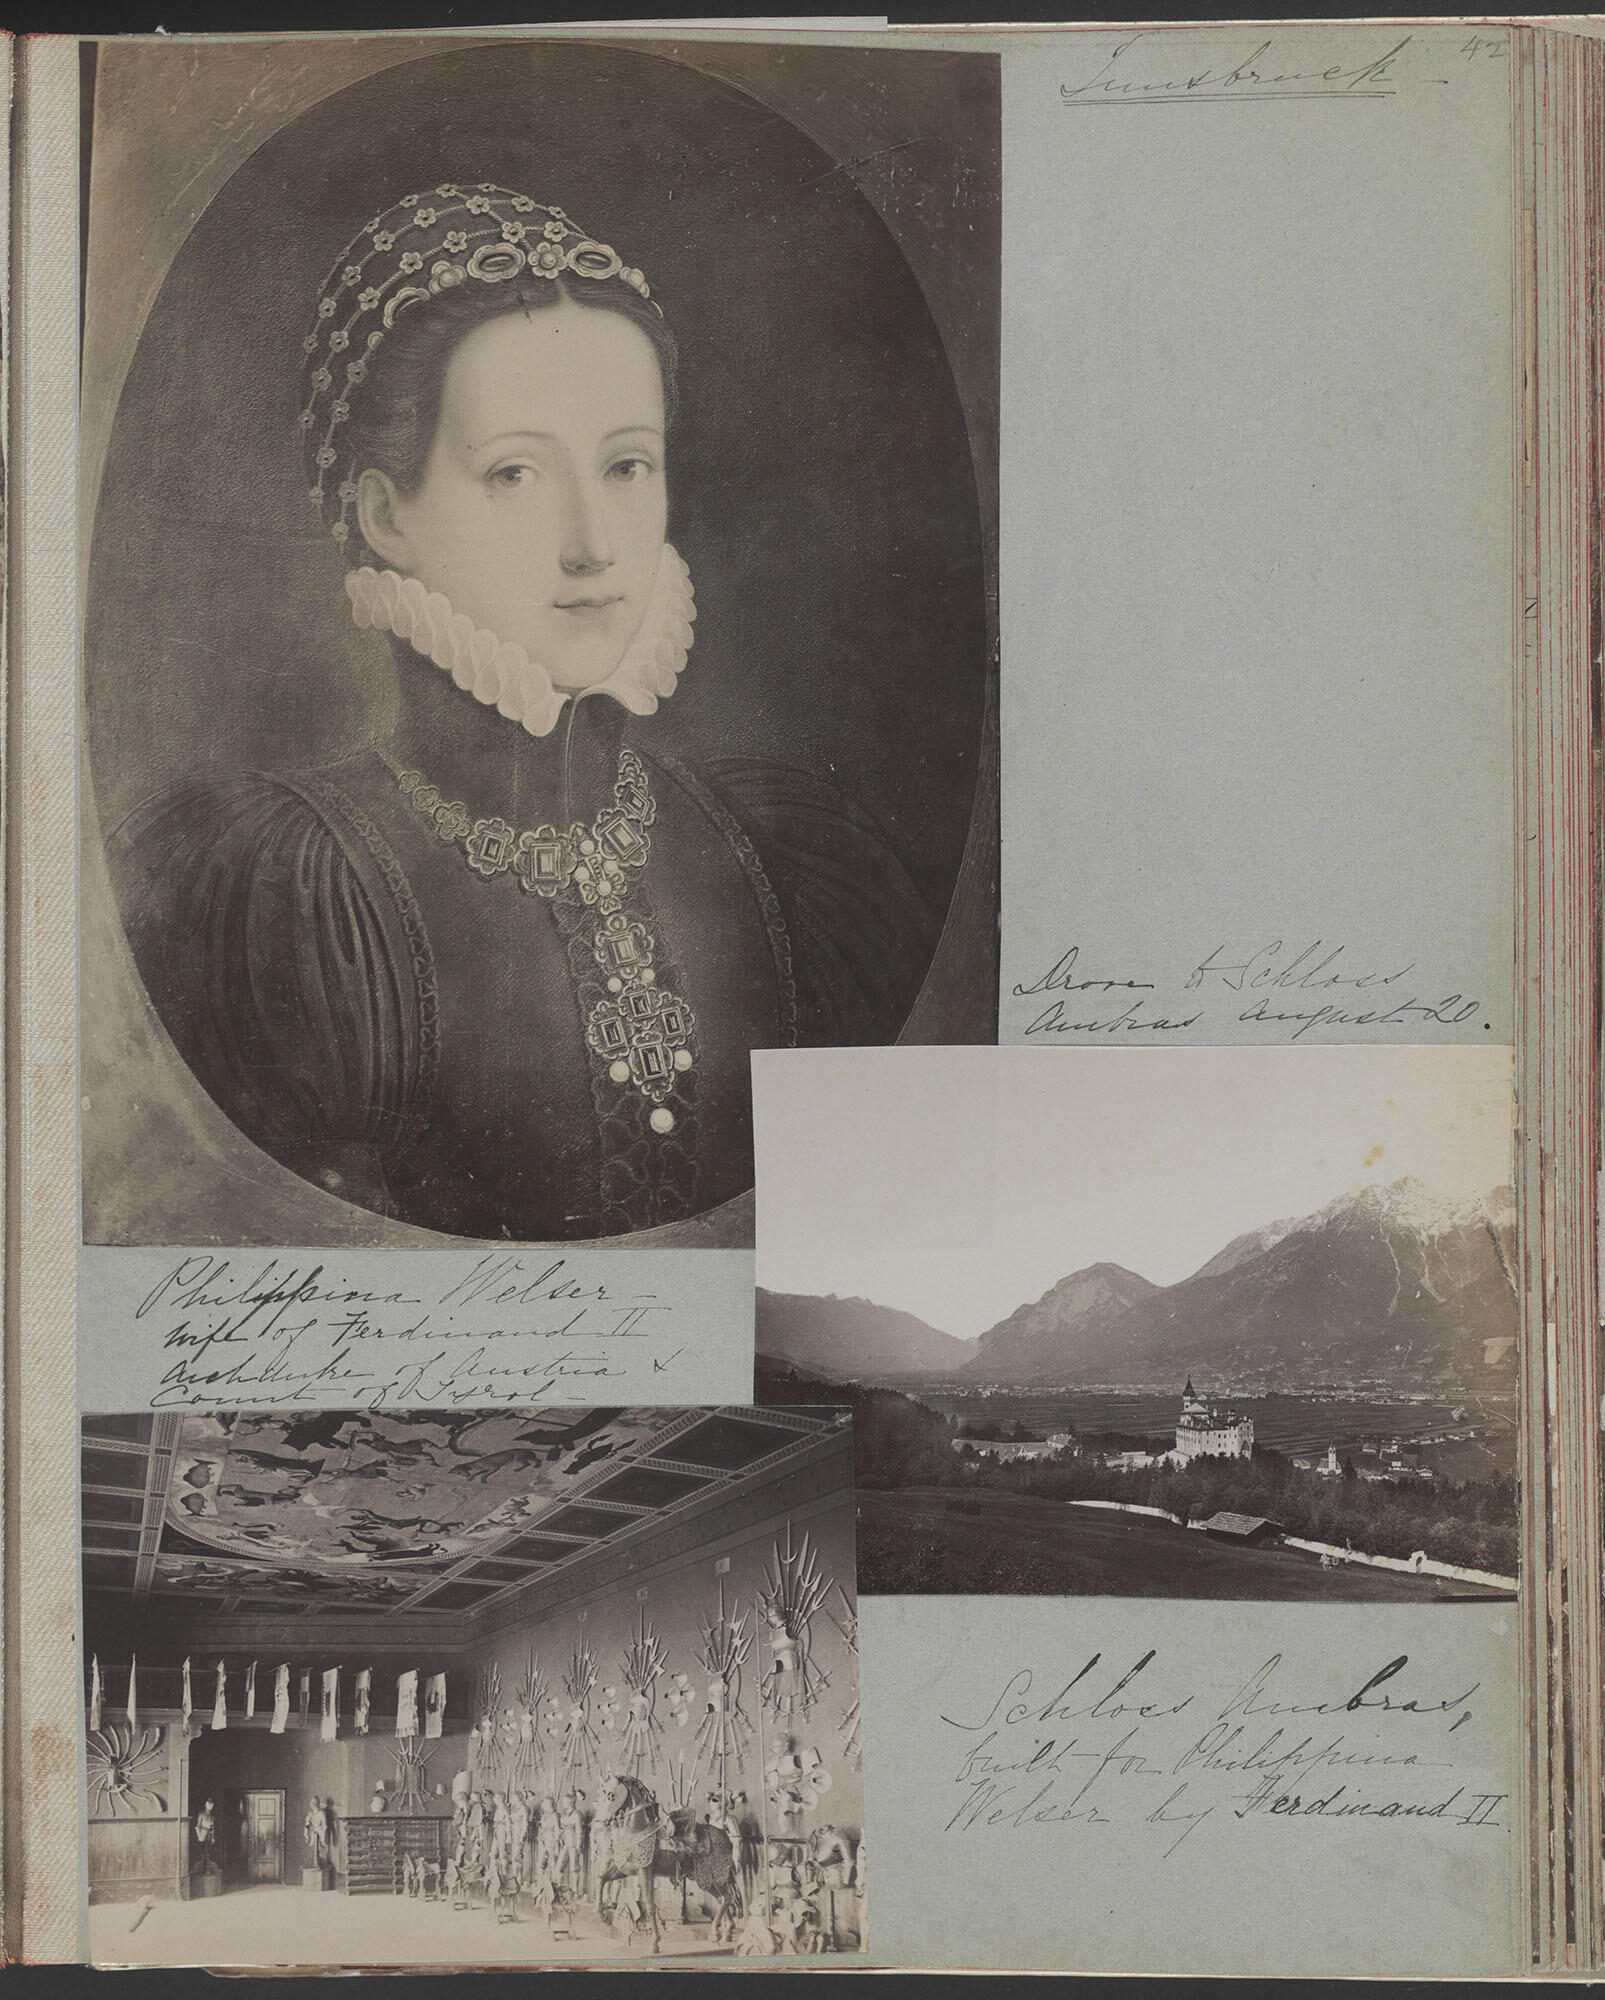 42
Innsbruck –
Drove to Schloss
Ambras August 20.
Philippina Welser –
wife of Ferdinand II
Archduke of Austria &
Count of Tyrol –
Schloss Ambras,
built for Philippina
Welser by Ferdinand II